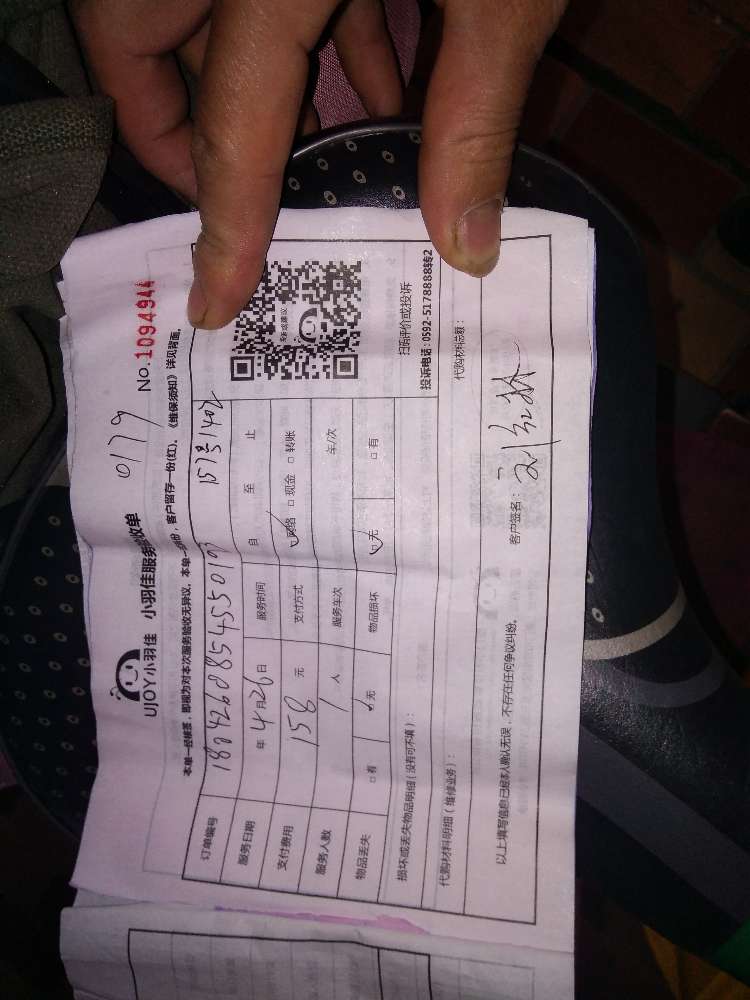 UJOY小羽佳 小羽佳服务验收单 0179 No.1094944
本单一经核签，即视为对本次服务验收无异议，本单一式两份，客户留存一份(红)，《维保须知》详见背面。
订单编号 180426085455019 157号1402
服务日期 年4月26日 服务时间 自 至 止
支付费用 158元 支付方式 ☑网络 □现金 □转账
服务人数 1人 服务车次 车/次
物品丢失 □有 ☑无 物品损坏 ☑无 □有
扫码评价或投诉
投诉电话：0592-5178888转2
损坏或丢失物品明细（没有可不填）：
代购材料明细（维修业务）： 代购材料总额：
以上填写信息已经本人确认无误，不存在任何争议纠纷。 客户签名：